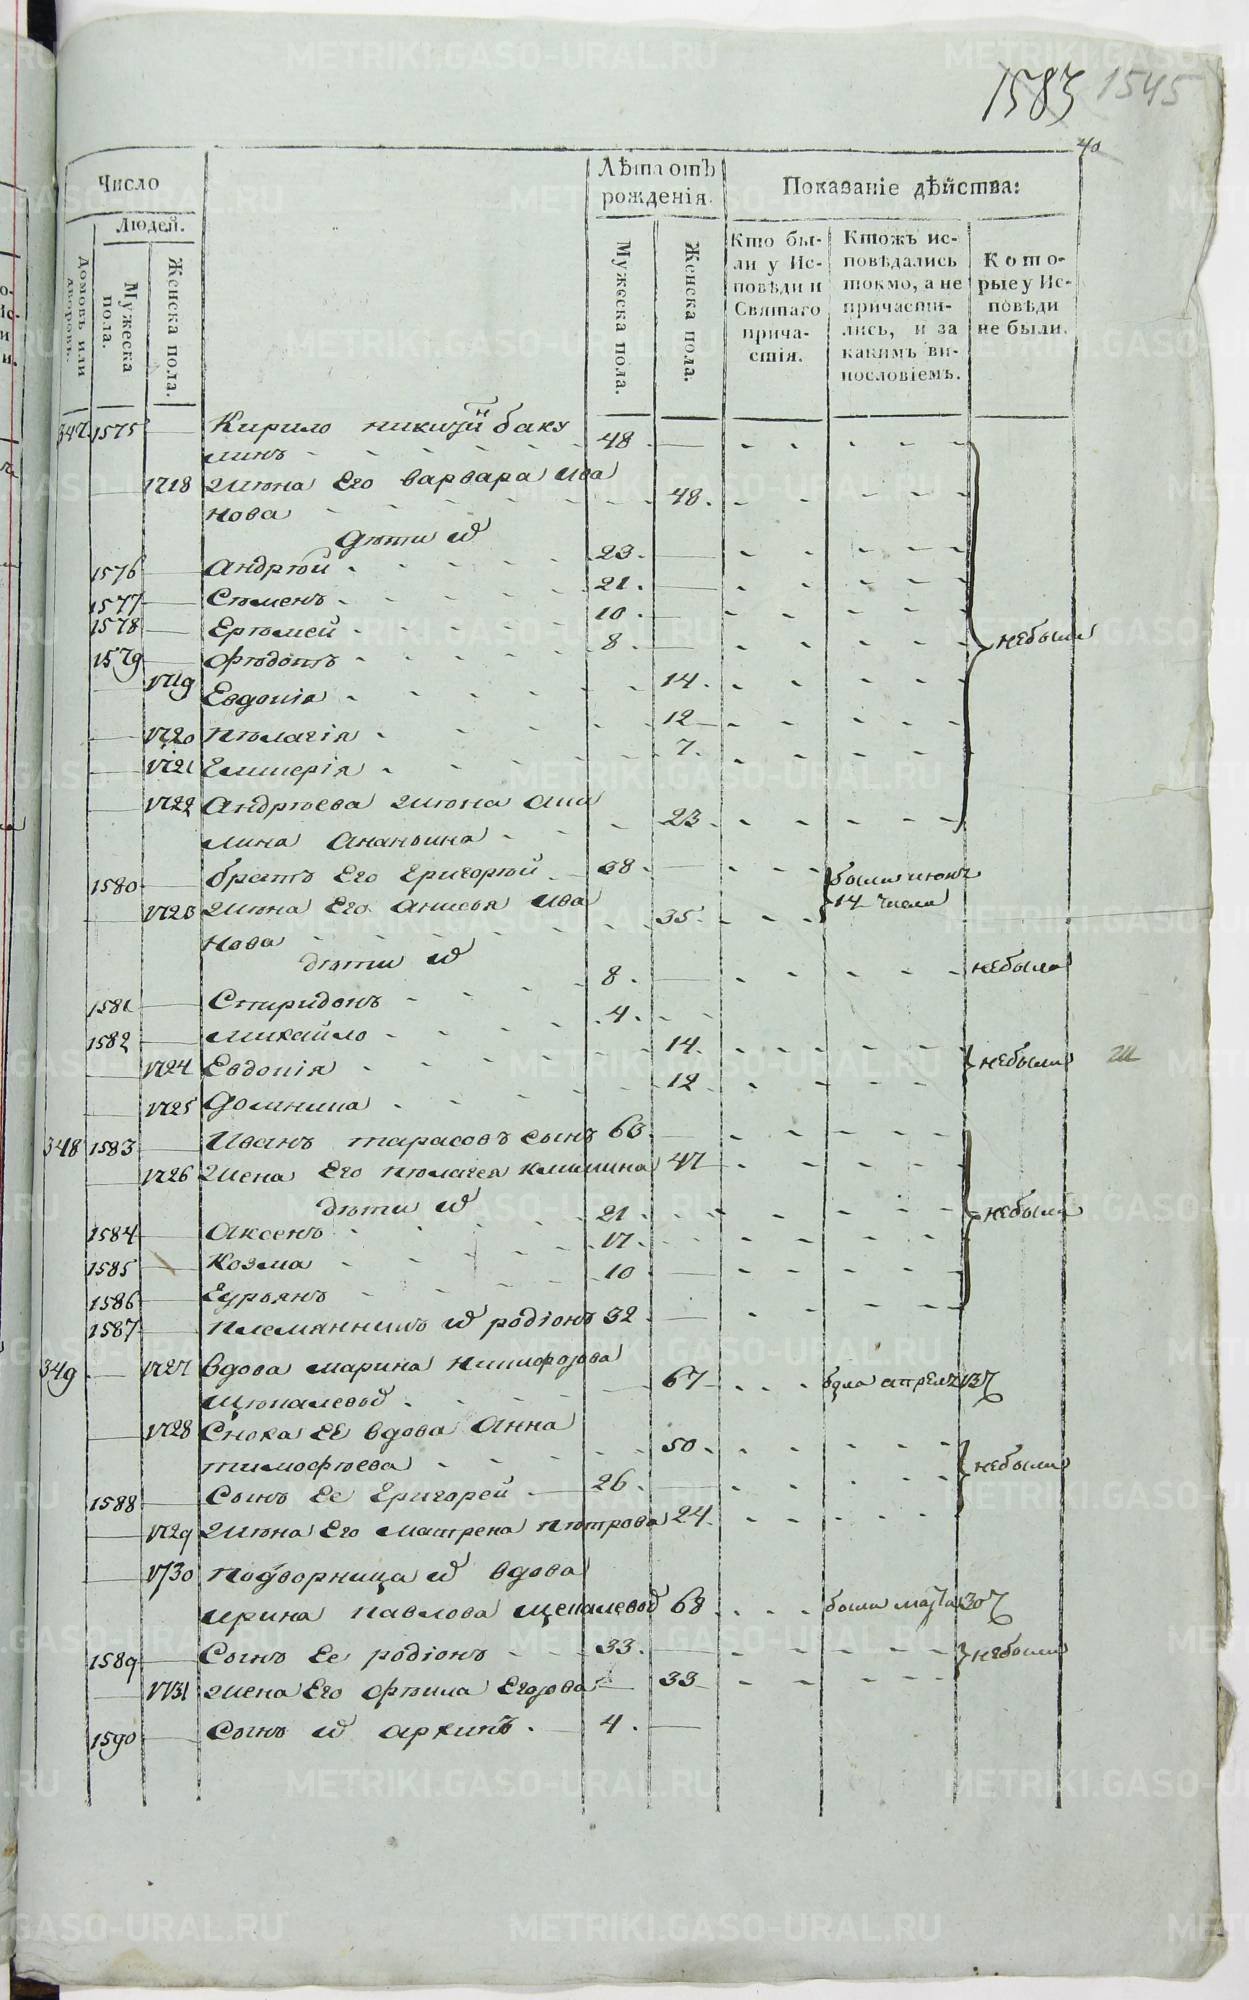 1583 1545
40
Число
Людей.
Домовъ или дворовъ.
Мужеска пола.
Женска пола.
Лѣта отъ рожденія.
Мужеска пола.
Женска пола.
Показаніе дѣйства:
Кто были у Исповѣди и Святаго причастія.
Ктожъ исповѣдались токмо, а не причастились, и за какимъ винословіемъ.
Которые у Исповѣди не были.
347 1575 Кирило никитин баку
линъ 48
1718 жѣна Его варвара ива
нова 48
дѣти ихъ
1576 Андрѣй 23
1577 Сѣменъ 21
1578 Ерѣмей 10
1579 Фѣдотъ 8 небыли
1719 Евдокіа 14
1720 пѣлагіа 12
1721 Гликеріа 7
1722 Андрѣева жѣна аки
лина Ананьина 23
1580 братъ Его Григорѣй 38 были июня
1723 жѣна Его анисья ива 14 числа
нова 35
дѣти их
1581 Спиридонъ 8 небылъ
1582 михайло 4
1724 Евдокіа 14 небыли
1725 Домника 12
348 1583 Иванъ тарасовъ сынъ 63
1726 жена Его пѣлагея климина 47
дѣти их
1584 Аксенъ 21 небыли
1585 козма 17
1586 Гурьянъ 10
1587 племянникъ их родіонъ 32
349 1727 вдова марина никифорова
67 была апреля
1728 Сноха ЕЕ вдова Анна
тимофѣева 50 небыли
1588 Сынъ Ее Григорей 26
1729 жѣна Его матрена пѣтрова 24
1730 подворница их вдова
ирина павлова 68 была марта
1589 Сынъ Ее родіонъ 33 небыли
1731 жена Его Фѣкла Егорова 33
1590 Сынъ их архипъ 4
METRIKI.GASO-URAL.RU